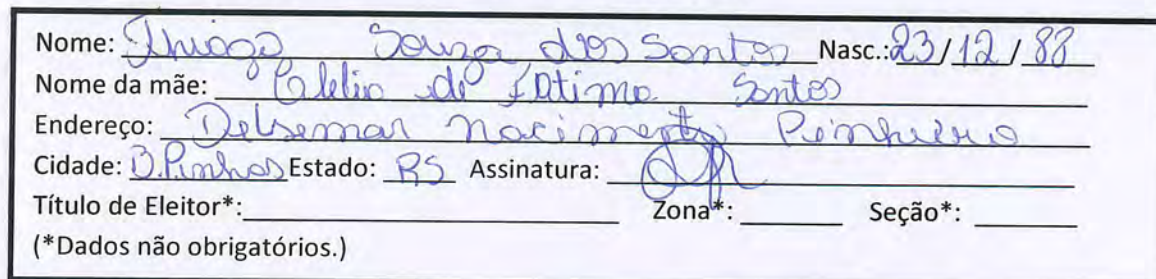 Nome: Thiago Souza dos Santos Nasc.:23/12/88
Nome da mãe: Clélia de Fatima Santos
Endereço: Delsemar nacimento Pinheiro
Cidade: B.Pinhos Estado: RS Assinatura:
Título de Eleitor*: Zona*: Seção*:
(*Dados não obrigatórios.)